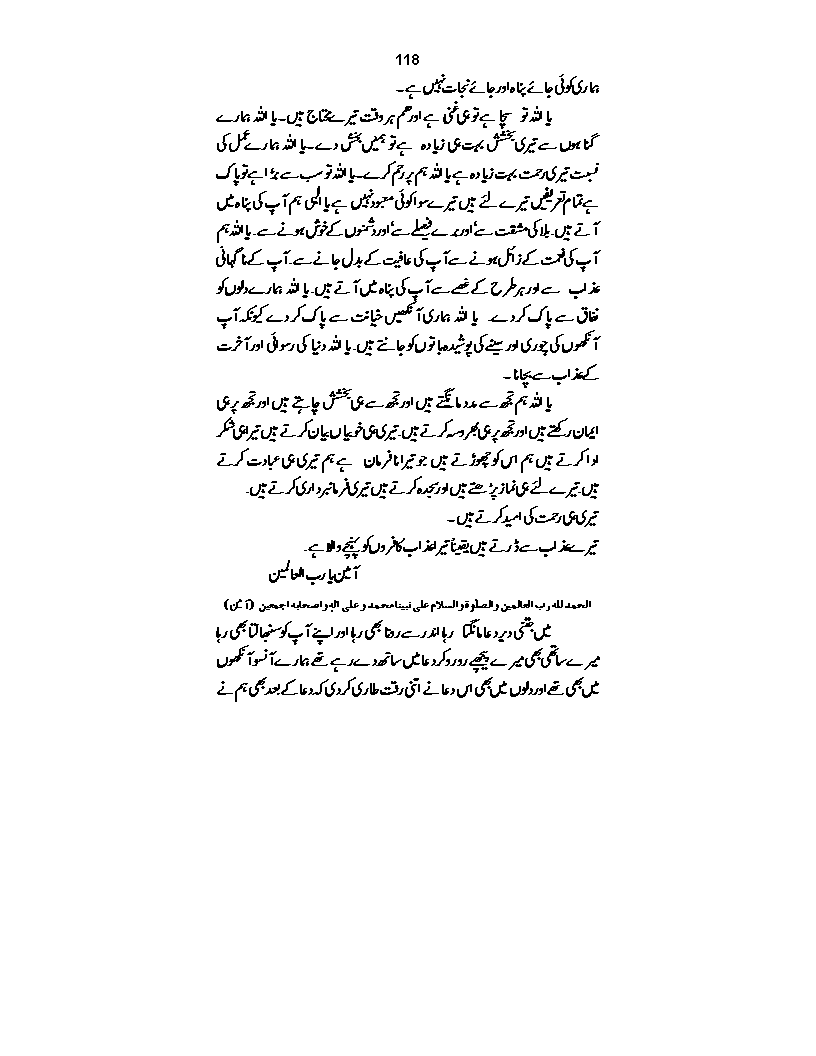 118
ہماری کوئی جائے پناہ اور جائے نجات نہیں ہے۔
یا اللہ تو سچا ہے تو ہی غنی ہے اور ہم ہر وقت تیرے محتاج ہیں۔ یا اللہ ہمارے
گناہوں سے تیری بخشش بہت ہی زیادہ ہے تو ہمیں بخش دے۔ یا اللہ ہمارے عمل کی
نسبت تیری رحمت بہت زیادہ ہے یا اللہ ہم پر رحم کرے۔ یا اللہ تو سب سے بڑا ہے تو پاک
ہے تمام تعریفیں تیرے لئے ہیں تیرے سوا کوئی معبود نہیں ہے یا الٰہی ہم آپ کی پناہ میں
آتے ہیں۔ بلا کی مشقت سے ٗاور برے فیصلے سے ٗ اور دشمنوں کے خوش ہونے سے۔ یا اللہ ہم
آپ کی نعمت کے زائل ہونے سے آپ کی عافیت کے بدل جانے سے۔ آپ کے ناگہانی
عذاب سے اور ہر طرح کے غصے سے آپ کی پناہ میں آتے ہیں۔ یا اللہ ہمارے دلوں کو
نفاق سے پاک کر دے۔ یا اللہ ہماری آنکھیں خیانت سے پاک کر دے کیونکہ آپ
آنکھوں کی چوری اور سینے کی پوشیدہ باتوں کو جانتے ہیں۔ یا اللہ دنیا کی رسوائی اور آخرت
کے عذاب سے بچانا۔
یا اللہ ہم تجھ سے مدد مانگتے ہیں اور تجھ سے ہی بخشش چاہتے ہیں اور تجھ پر ہی
ایمان رکھتے ہیں اور تجھ پر ہی بھروسہ کرتے ہیں۔ تیری ہی خوبیاں بیان کرتے ہیں تیرا ہی شکر
ادا کرتے ہیں ہم اس کو چھوڑتے ہیں جو تیرا نافرمان ہے ہم تیری ہی عبادت کرتے
ہیں۔ تیرے لئے ہی نماز پڑھتے ہیں اور سجدہ کرتے ہیں تیری فرمانبرداری کرتے ہیں۔
تیری ہی رحمت کی امید کرتے ہیں۔
تیرے عذاب سے ڈرتے ہیں یقیناً تیرا عذاب کافروں کو پہنچنے والا ہے۔
آمین یا رب العالمین
الحمد للہ رب العالمین والصلوۃ والسلام علی نبینا محمد و علی الہ واصحابہ اجمعین (آمین)
میں جتنی دیر دعا مانگتا رہا اندر سے روتا بھی رہا اور اپنے آپ کو سنبھالتا بھی رہا
میرے ساتھی بھی میرے پیچھے رو رو کر دعا میں ساتھ دے رہے تھے ہمارے آنسو آنکھوں
میں بھی تھے اور دلوں میں بھی اس دعا نے اتنی رقت طاری کر دی کہ دعا کے بعد بھی ہم نے